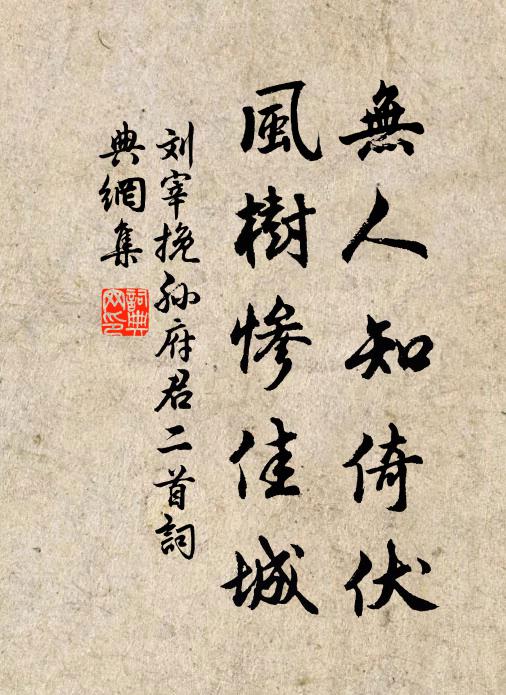 無人知倚伏
風樹慘佳城
刘宰挽孙府君二首詞
典網集
詞典網印